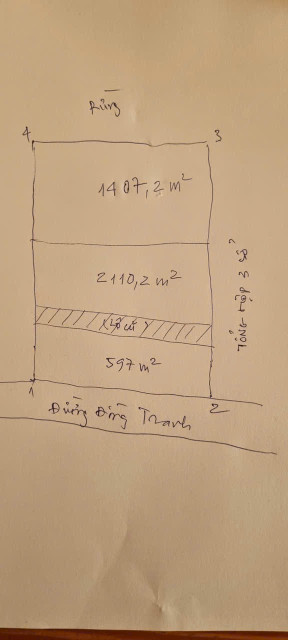 Rừng
4
3
1407,2 m²
2110,2 m²
Lộ cũ
597 m²
1
2
Đường Đồng Tranh
TỔNG HỢP 3 SỔ